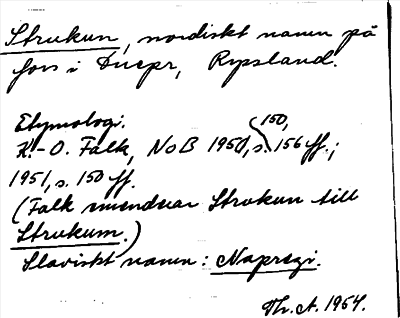 Strukun, nordiskt namn på
fors i Dnepr, Ryssland.
Etymologi.
K.-O. Falk, NoB 1950, s. 150, 156 ff.;
1951, s. 150 ff.
(Falk emenderar Strukun till
Strukum.)
Slaviskt namn: Naprezi.
Th. A. 1964.